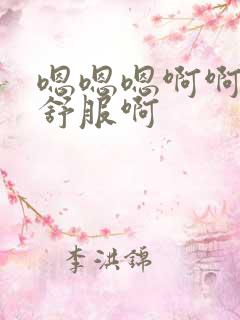 嗯嗯嗯啊啊
舒服啊
李洪锦